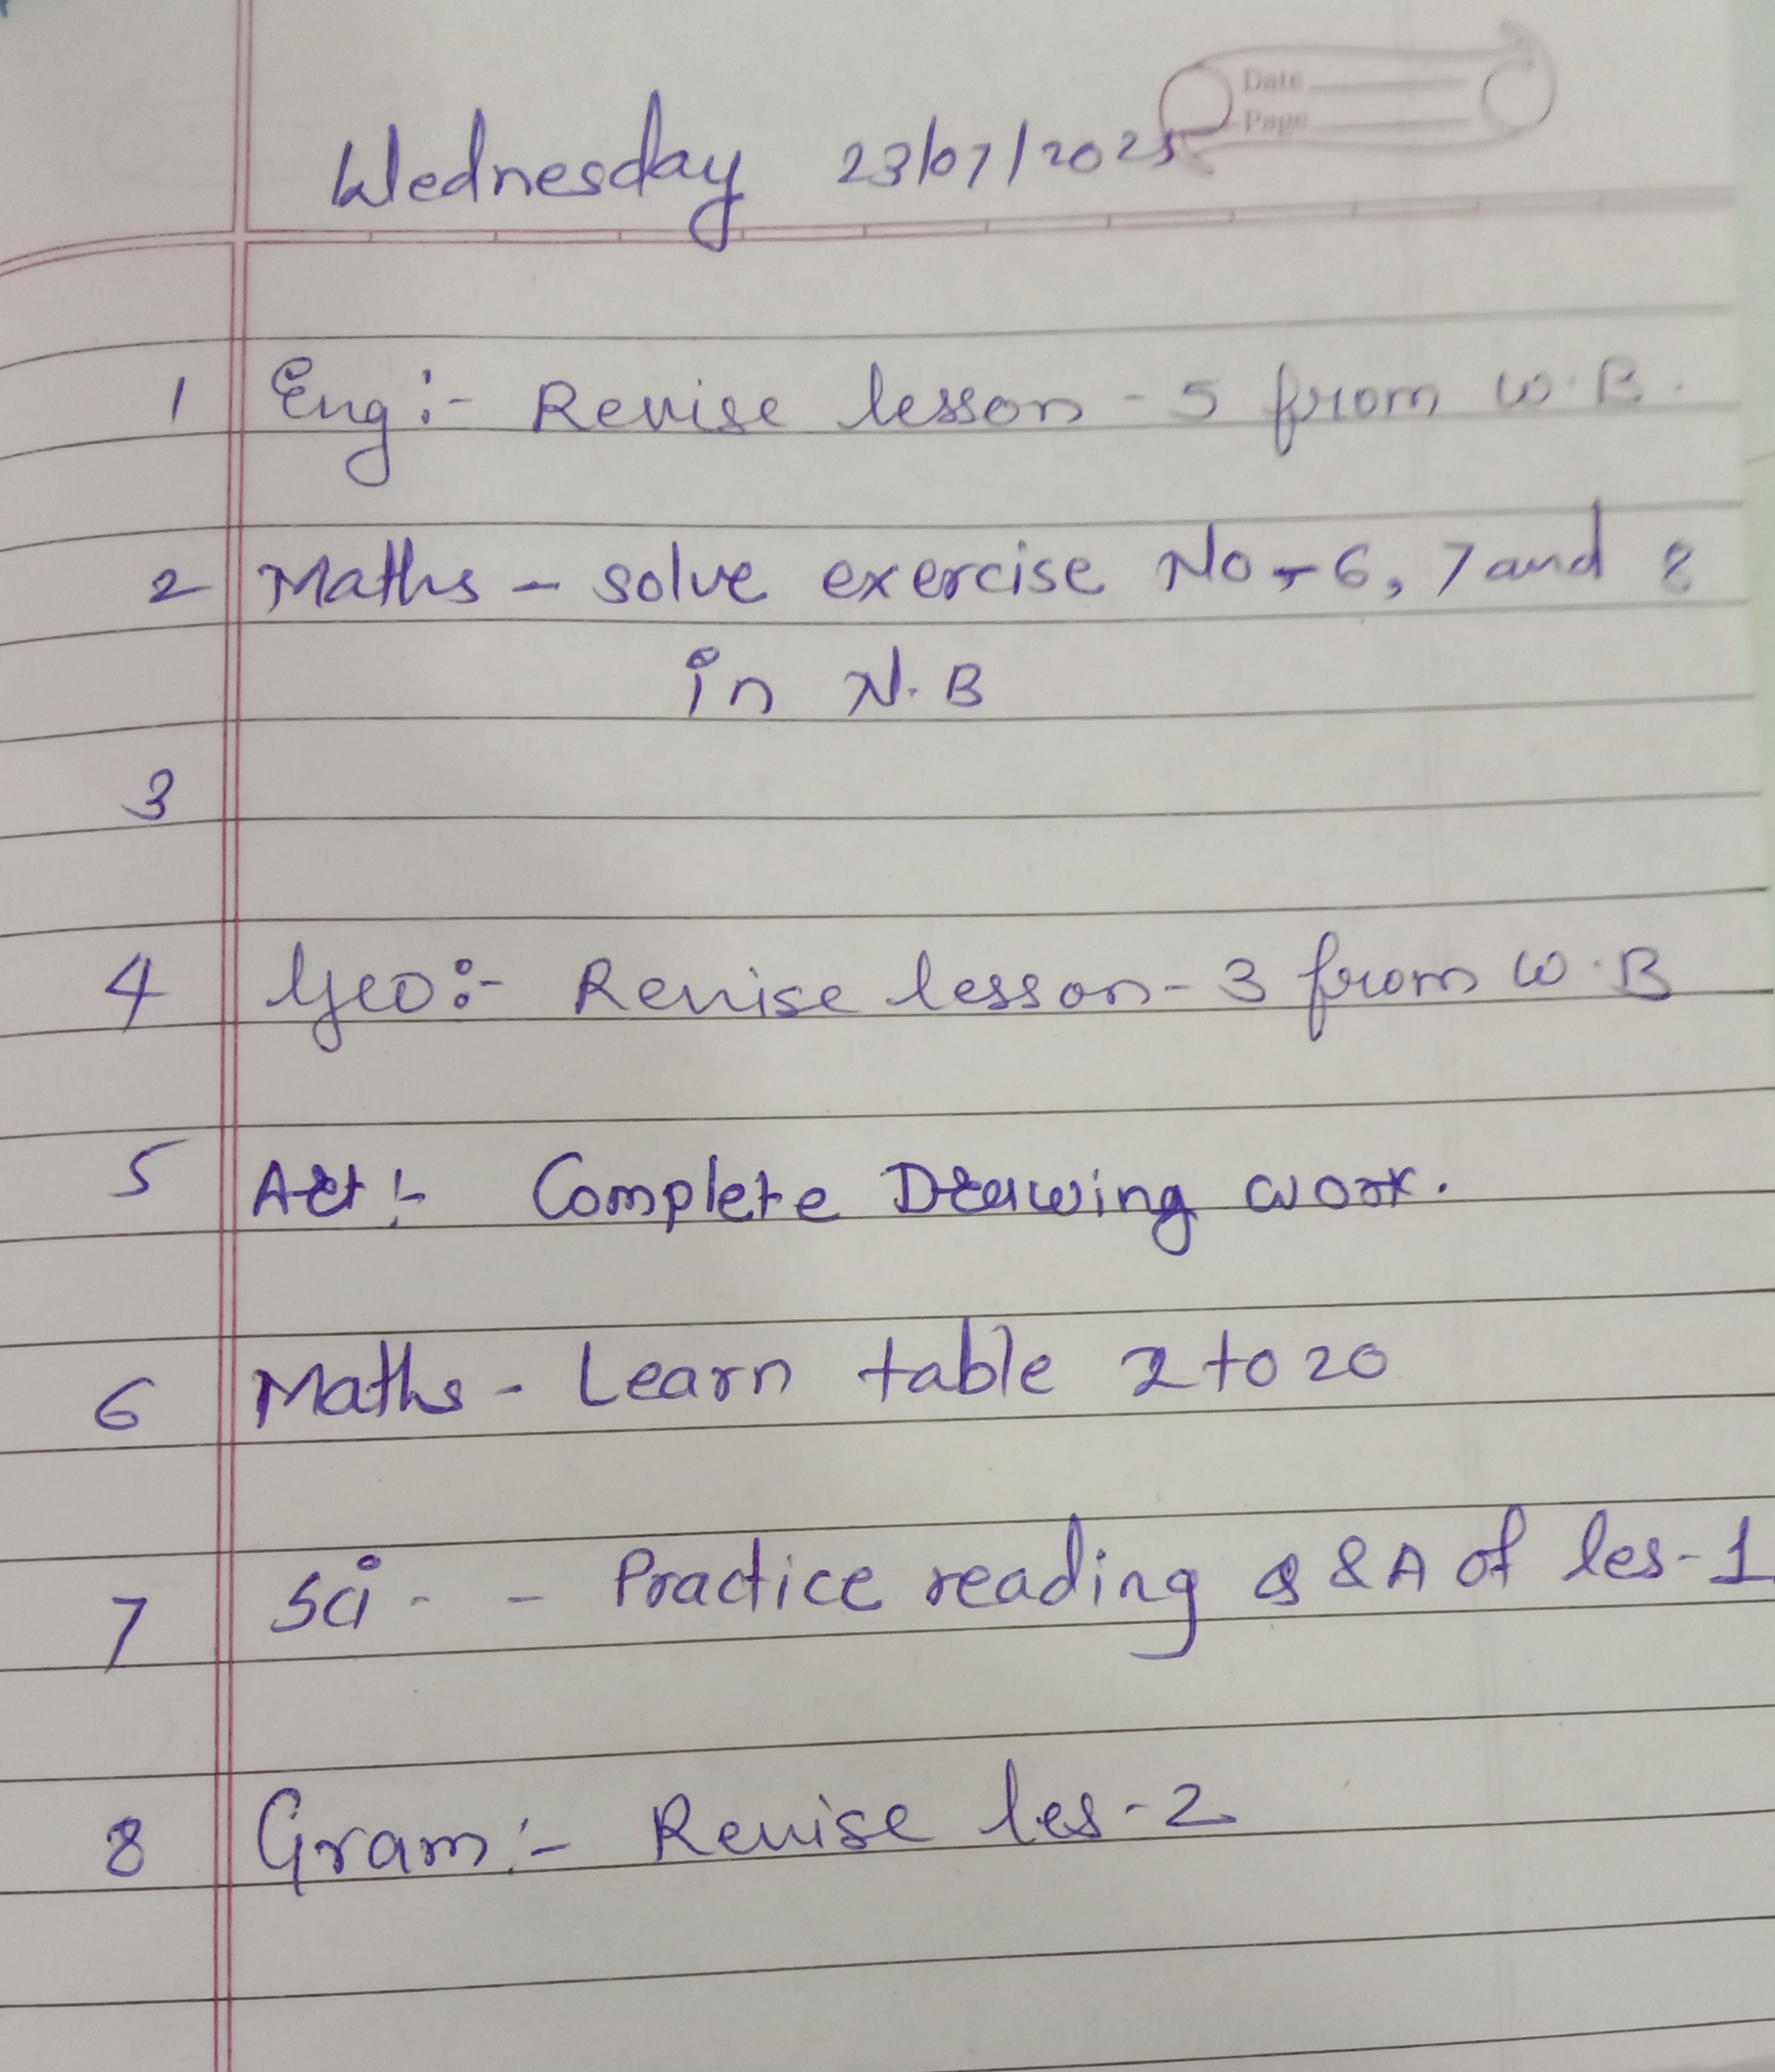 Date
Page
Wednesday 23/07/2025
1 Eng:- Revise lesson - 5 from W.B.
2 Maths - solve exercise No - 6, 7 and 8
in N.B
3
4 Geo:- Revise lesson - 3 from W.B
5 Art:- Complete Drawing work.
6 Maths - Learn table 2 to 20
7 Sci - - Practice reading Q & A of les - 1
8 Gram:- Revise les - 2